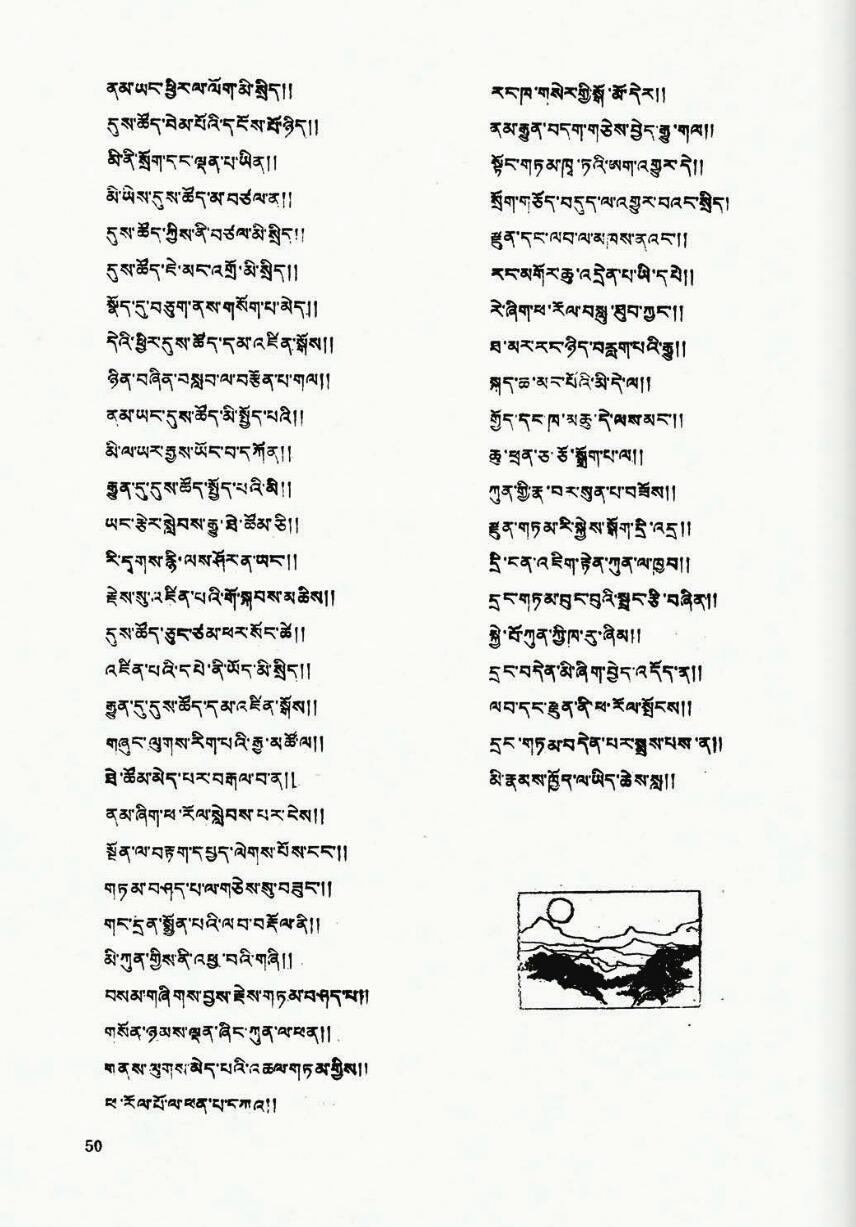 ནམ་ཡང་ཕྱིར་ལ་ལོག་མི་སྲིད།།
དུས་ཚོད་བེམ་པོའི་དངོས་པོ་ཉིད།།
མི་ནི་སྲོག་དང་ལྡན་པ་ཡིན།།
མི་ཡིས་དུས་ཚོད་མ་བཙལ་ན།།
དུས་ཚོད་ཀྱིས་ནི་བཙལ་མི་སྲིད།།
དུས་ཚོད་ཇེ་མང་འགྲོ་མི་སྲིད།།
སྣོད་དུ་བཅུག་ནས་གསོག་པ་མེད།།
དེའི་ཕྱིར་དུས་ཚོད་དམ་འཛིན་སྒོས།།
ཉིན་བཞིན་བསླབ་ལ་བརྩོན་པ་གལ།།
ནམ་ཡང་དུས་ཚོད་མི་སྤྱོད་པའི།།
མི་ལ་ཡར་རྒྱས་ཡོང་བ་དཀོན།།
རྒྱུན་དུ་དུས་ཚོད་སྤྱོད་པའི་མི།།
ཡང་རྩེར་སླེབས་རྒྱུ་ཐེ་ཚོམ་ཅི།།
རི་དྭགས་རྙི་ལས་ཤོར་ན་ཡང་།།
རྗེས་སུ་འཛིན་པའི་གོ་སྐབས་མཆིས།།
དུས་ཚོད་ཅུང་ཙམ་ཕར་སོང་ཚེ།།
འཛིན་པའི་དཔེ་ནི་ཡོད་མི་སྲིད།།
རྒྱུན་དུ་དུས་ཚོད་དམ་འཛིན་སྒོས།།
གཞུང་ལུགས་རིག་པའི་རྒྱ་མཚོལ།།
ཐེ་ཚོམ་མེད་པར་བརྒལ་བ་ན།།
ནམ་ཞིག་ཕ་རོལ་སླེབས་པར་ངེས།།
སྔོན་ལ་བརྟག་དཔྱད་ལེགས་པོས་ངང་།།
གཏམ་བཤད་པ་ལ་གཅེས་སུ་བཟུང་།།
གང་དྲན་སྨྱོན་པའི་ལབ་བརྡོལ་ནི།།
མི་ཀུན་གྱིས་ནི་འཕྱ་བའི་གཞི།།
བསམ་གཞིགས་བྱས་རྗེས་གཏམ་བཤད་པ།།
གསོན་ཉམས་ལྡན་ཞིང་ཀུན་ལ་ཕན།།
གནས་ལུགས་མེད་པའི་འཆལ་གཏམ་གྱིས།།
ཕ་རོལ་པོ་ལ་ཕན་པ་དཀའ།།
རང་ཁ་གསེར་གྱི་སྒོ་མོ་དེར།།
ནམ་རྒྱུན་བདག་གཅེས་བྱེད་རྒྱུ་གལ།།
སྟོང་གཏམ་ཁྭ་ཏའི་ཨག་འགྱུར་དེ།།
སྲོག་གཅོད་བདུད་ལ་འགྱུར་བའང་སྲིད།
རྫུན་དང་ལབ་ལ་མཁས་ནའང་།།
རང་མགོར་ཆུ་འདྲེན་པ་ཡི་དཔེ།།
རེ་ཞིག་ཕ་རོལ་བསླུ་ཐུབ་ཀྱང་།།
ཐ་མར་རང་ཉིད་བརླག་པའི་རྒྱུ།།
སྐད་ཆ་མང་པོའི་མི་དེ་ལ།།
ཀྱོད་དང་ཁ་མཆུ་དེ་ལས་མང་།།
ཆུ་ཕྲན་ཅ་ཅོ་སྒྲོག་པ་ལ།།
ཀུན་གྱི་རྣ་བར་སུན་པ་བཟོས།།
རྫུན་གཏམ་རི་སྐྱེས་སྒོག་དྲི་འདྲ།།
དྲི་ངན་འཇིག་རྟེན་ཀུན་ལ་ཁྱབ།།
དྲང་གཏམ་བུང་བུའི་སྦྲང་རྩི་བཞིན།།
སྐྱེ་བོ་ཀུན་ཀྱི་ཁ་རུ་ཞིམ།།
དྲང་བདེན་མི་ཞིག་བྱེད་འདོད་ན།།
ལབ་དང་རྫུན་ནི་ཕ་རོལ་སྤོངས།།
དྲང་གཏམ་བདེན་པར་སྨྲས་པས་ན།།
མི་རྣམས་ཁྱོད་ལ་ཡིད་ཆེས་སླ།།
50